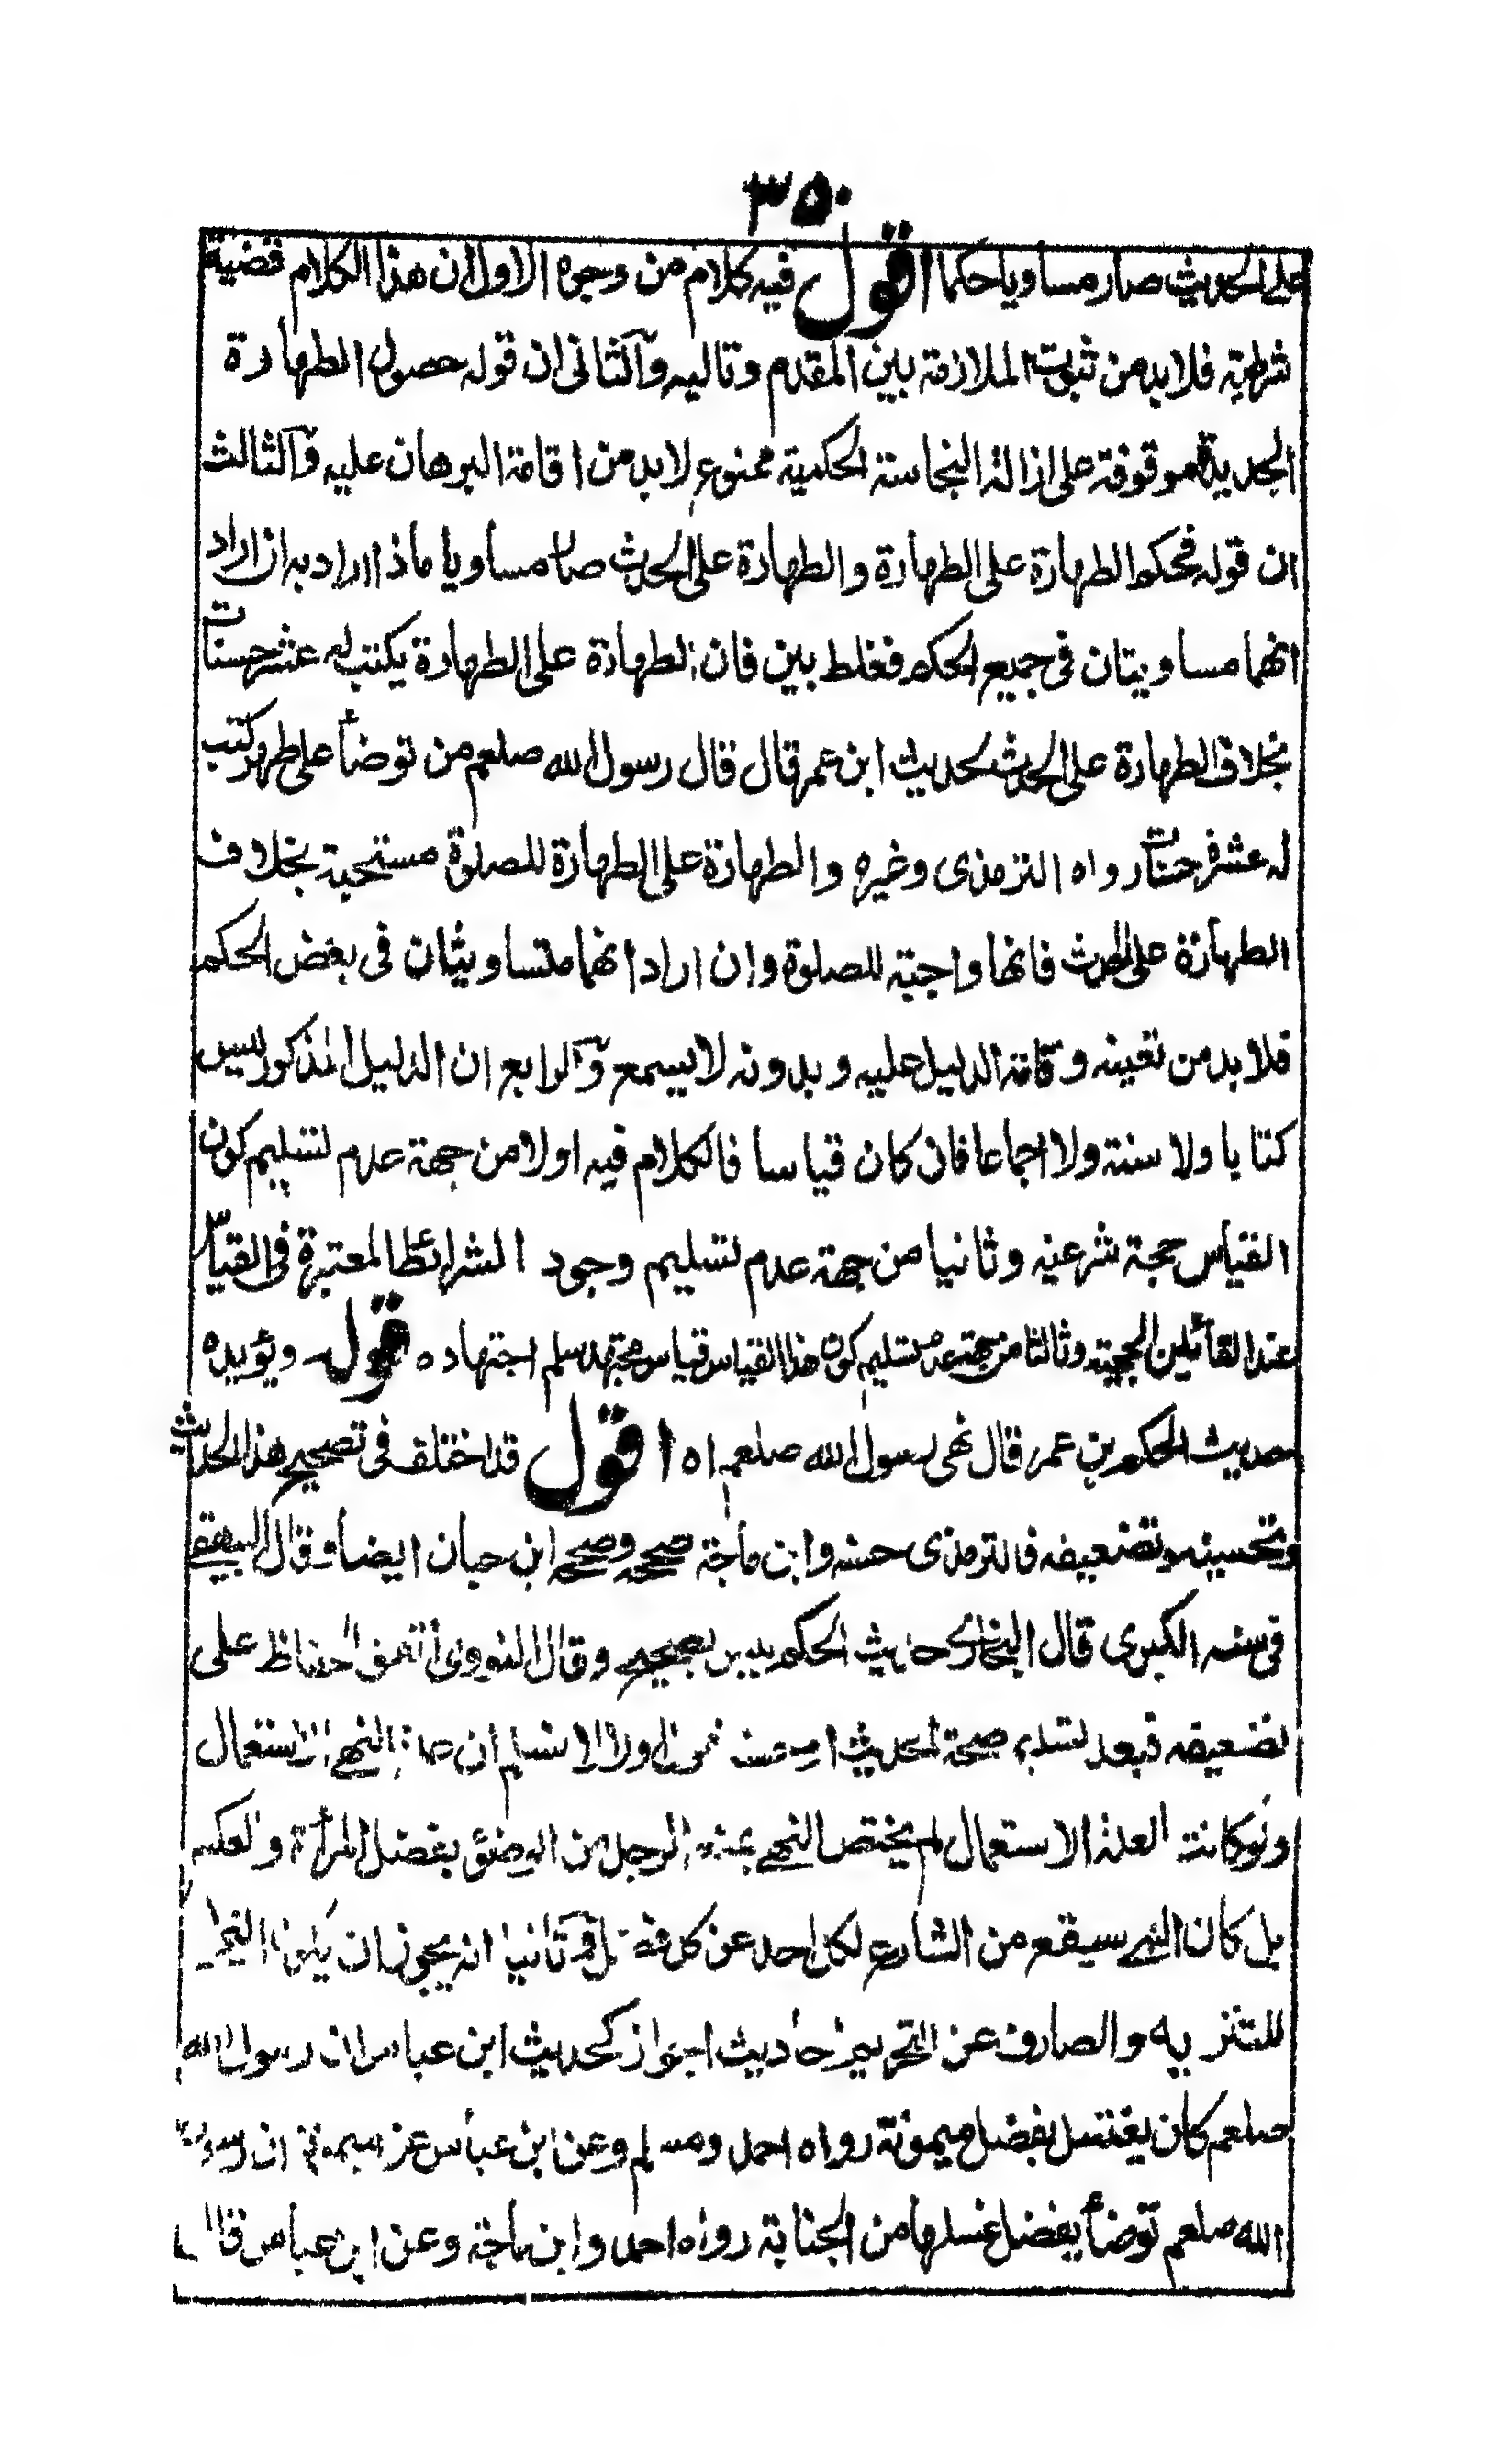 ٣٥٠
على الحديث صار مساويا حكما اقول فيه كلام من وجوه الاول ان هذا الكلام قضية
شرطية فلا بد من ثبوت الملازمة بين المقدم وتاليه والثانى ان قوله حصول الطهارة
الجديدة موقوفة على ازالة النجاسة الحكمية ممنوع لا بد من اقامة البرهان عليه والثالث
ان قوله فحكم الطهارة على الطهارة والطهارة على الحدث صار مساويا ماذا اراد به ان اراد
انهما مساويتان فى جميع الحكم فغلط بين فان الطهارة على الطهارة يكتب له عشر حسنات
بخلاف الطهارة على الحدث لحديث ابن عمر قال قال رسول الله صلعم من توضأ على طهر كتب
له عشر حسنات رواه الترمذى وغيره والطهارة على الطهارة للصلوة مستحبة بخلاف
الطهارة على الحدث فانها واجبة للصلوة وان اراد انهما متساويتان فى بعض الحكم
فلا بد من تعينه و قامة الدليل عليه وبدونه لا يسمع والرابع ان الدليل المذكور ليس
كتابا ولا سنة ولا اجماعا فان كان قياسا فالكلام فيه اولا من جهة عدم تسليم كون
القياس حجة شرعيه وثانيا من جهة عدم تسليم وجود الشرائط المعتبرة فى القياس
عند القائلين بالحجية وثالثا من جهة عدم تسليم كون هذا القياس قياس مجتهد سلم اجتهاده قول ويؤيده
حديث الحكم بن عمر قال نهى رسول الله صلعم اه اقول قد اختلف فى تصحيح هذا الحديث
وتحسينه وتضعيفه فالترمذى حسنه وابن ماجة صححه وصححه ابن حبان ايضا وقال البيهقى
فى سننه الكبرى قال البخارى حديث الحكم ليس بصحيح وقال النووى اتفق الحفاظ على
تضعيفه فبعد تسليم صحة الحديث او حسنه نقول اولا لا نسلم ان علة النهى الاستعمال
ولو كانت العلة الاستعمال لم يختص النهى بمنع الرجل من الوضئ بفضل المرأة والعكس
بل كان النهى سيقع من الشارع لكل احد عن كل فضل وثانيا انه يجوز ان يكون النهى
للتنزيه والصارف عن التحريم احاديث الجواز كحديث ابن عباس ان رسول الله
صلعم كان يغتسل بفضل ميمونة رواه احمد ومسلم وعن ابن عباس عن ميمونة ان رسول
الله صلعم توضأ بفضل غسلها من الجنابة رواه احمد وابن ماجة وعن ابن عباس قال